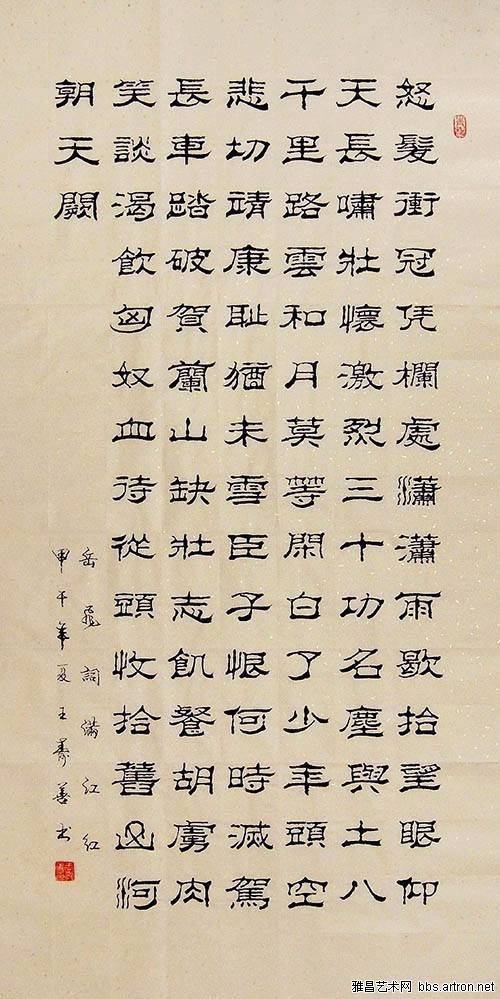 怒髮衝冠凭欄處瀟瀟雨歇抬望眼仰
天長嘯壯懷激烈三十功名塵與土八
千里路雲和月莫等閑白了少年頭空
悲切靖康恥猶未雪臣子恨何時滅駕
長車踏破賀蘭山缺壯志飢餐胡虜肉
笑談渴飲匈奴血待從頭收拾舊山河
朝天闕
岳飛詞滿江紅
甲午年夏王壽善书
雅昌艺术网 bbs.artron.net